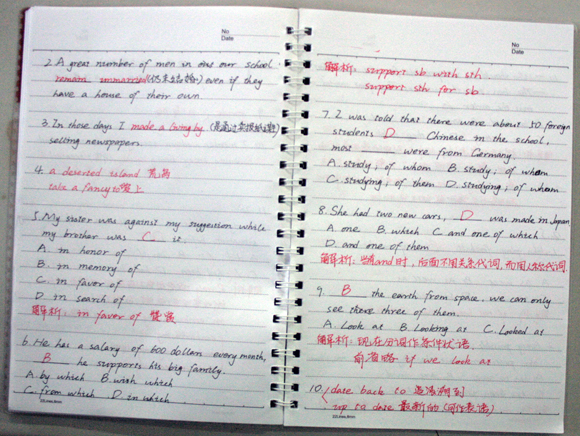 No
Date
2. A great number of men in our school
remain unmarried(仍未结婚) even if they
have a house of their own.
3. In those days I made a living by
selling newspapers.
4. a deserted island 荒岛
take a fancy to 爱上
5. My sister was against my suggestion while
my brother was C it.
A. in honor of
B. in memory of
C. in favor of
D. in search of
解析: in favor of 赞成
6. He has a salary of 600 dollars every month,
B he supports his big family.
A. by which B. with which
C. from which D. in which
No
Date
解析: support sb with sth
support sth for sb.
7. I was told that there were about 50 foreign
students D Chinese in the school,
most were from Germany.
A. study, of whom B. study, of them
C. studying, of them D. studying, of whom
8. She had two new cars, D was made in Japan
A. one B. which C. and one of which
D. and one of them
解析: 当有and时,后面不用关系代词,而用人称代词.
9. B the earth from space, we can only
see there three of them.
A. Look at B. Looking at C. Looked at
解析: 现在分词作条件状语
前省略 if we look at
10. date back to 追溯到
up to date 最新的(可作表语)